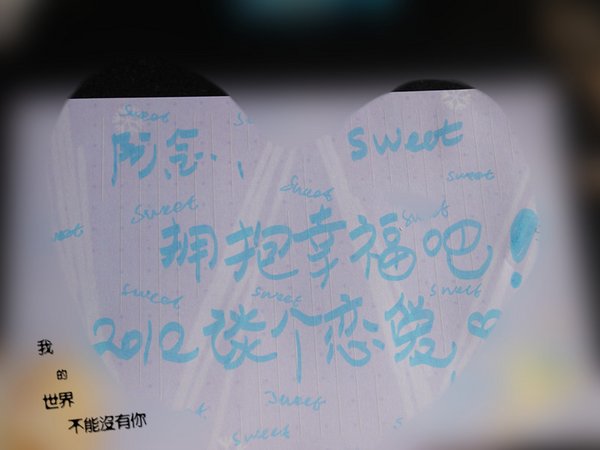 Sweet
Sweet
sweet
Sweet
Sweet
拥抱幸福吧!
sweet
sweet
sweet
2012谈个恋爱
Sweet
Sweet
我
的
世界
不能沒有你